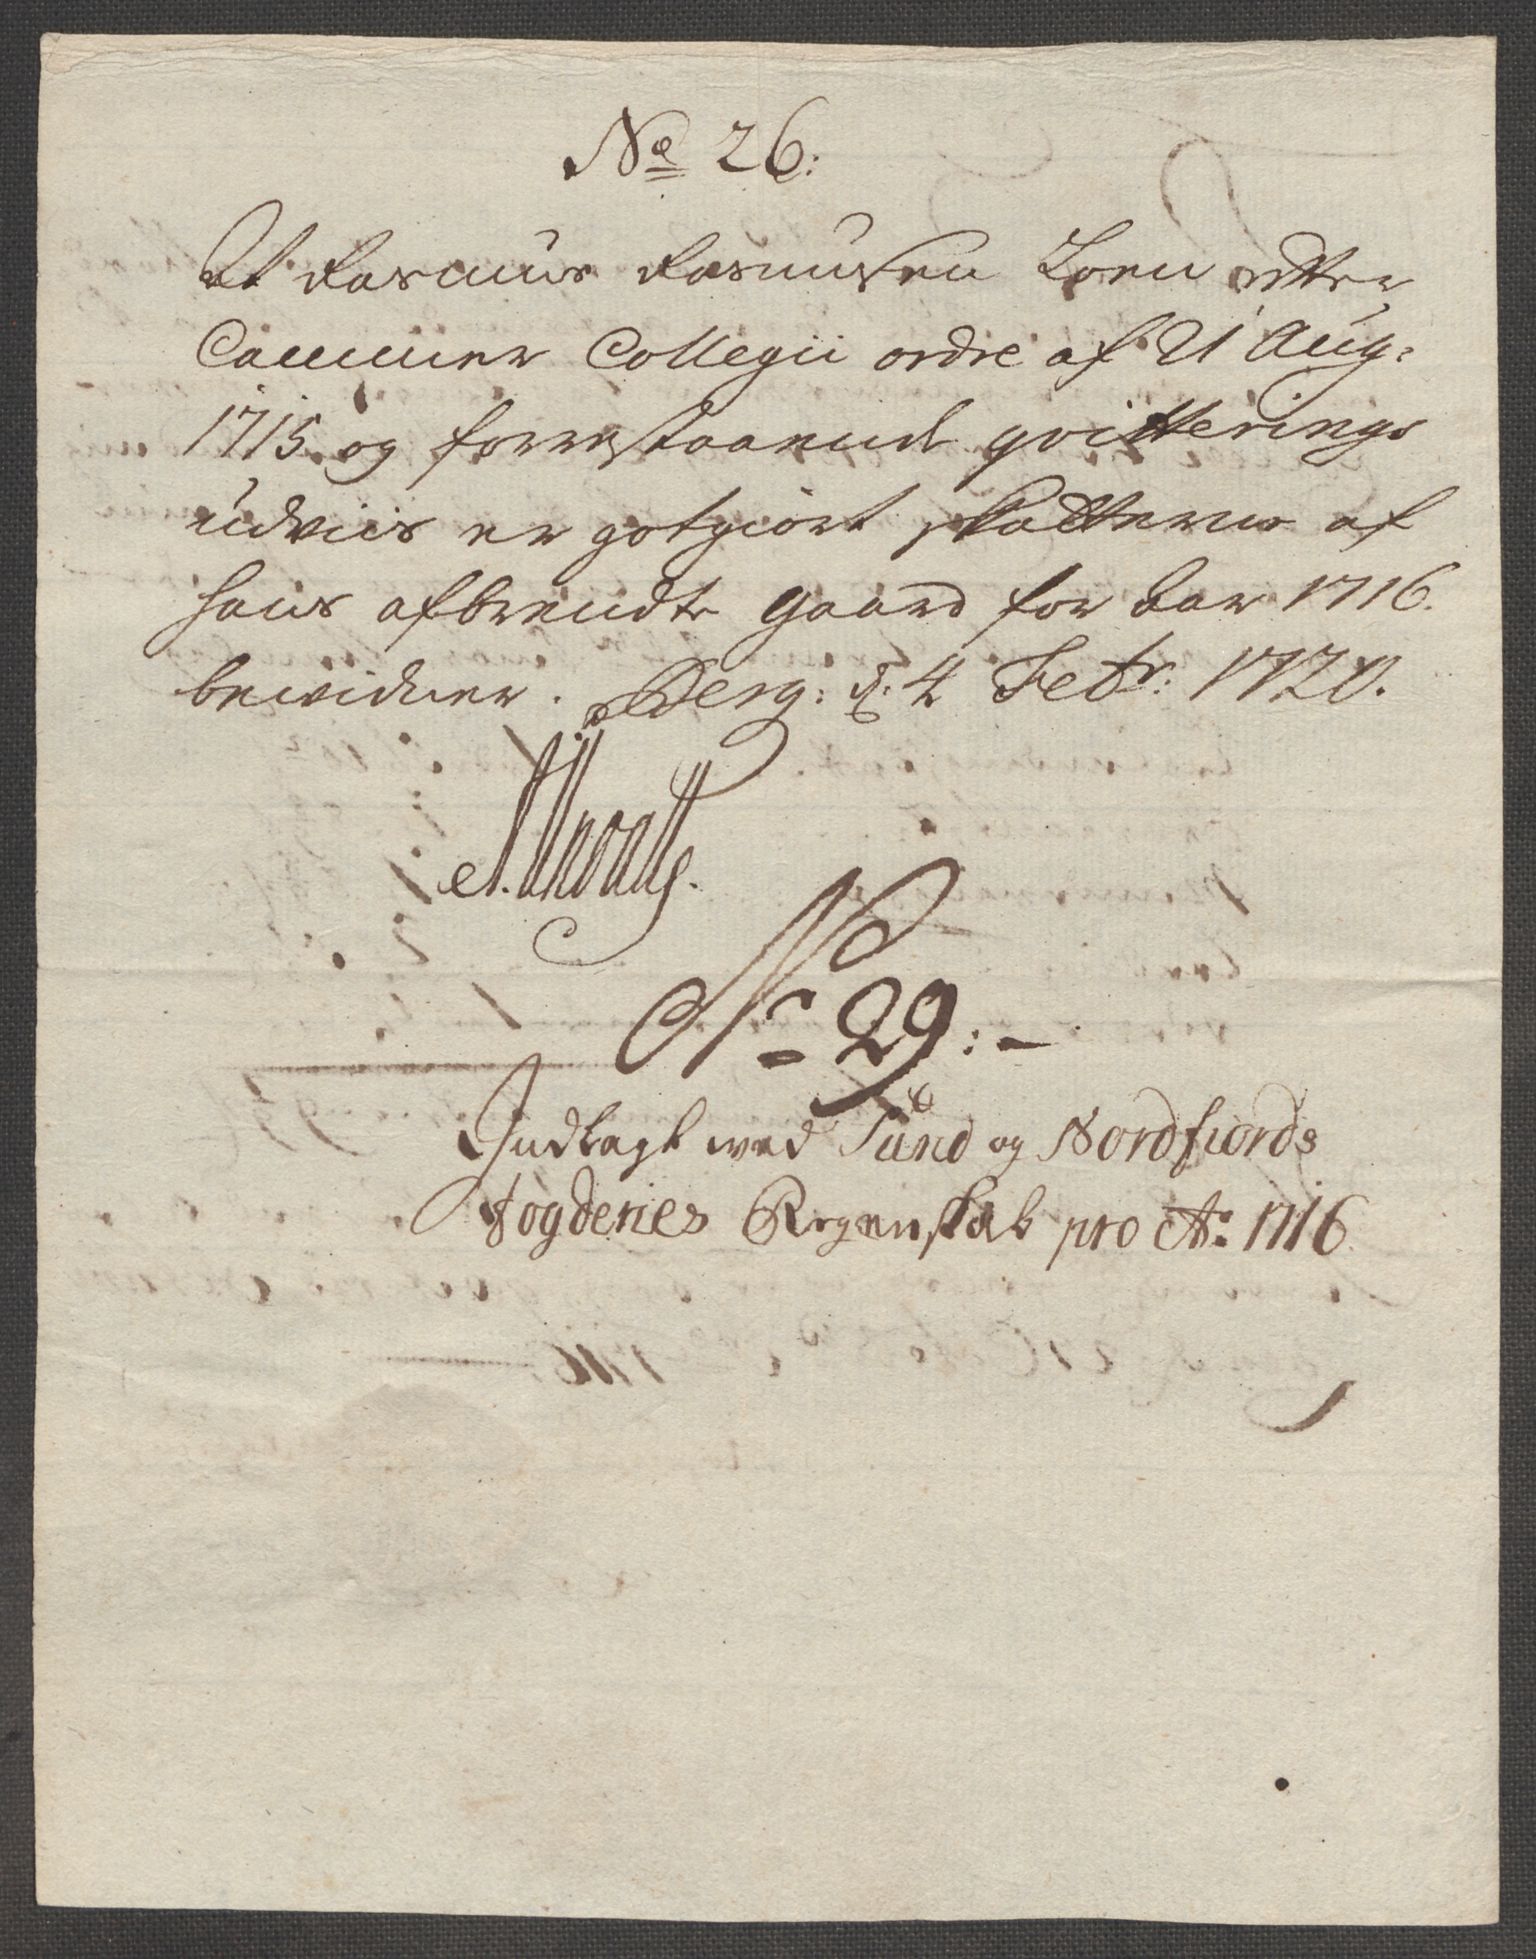 No 26:
At Rasmus Rasmusen Loen efter
Cammer Collegii ordre af 21 Aug:
1715 og forrestaaende qvitterings
udviis er gotgiort skatterne af
hans afbrendte gaard for Aar 1716.
bevidner. Berg: d: 4 Febr: 1720.
No 29:-
Indlagt ved Sund og Nordfiords
Fogderies Regenskab pro Ao: 1716